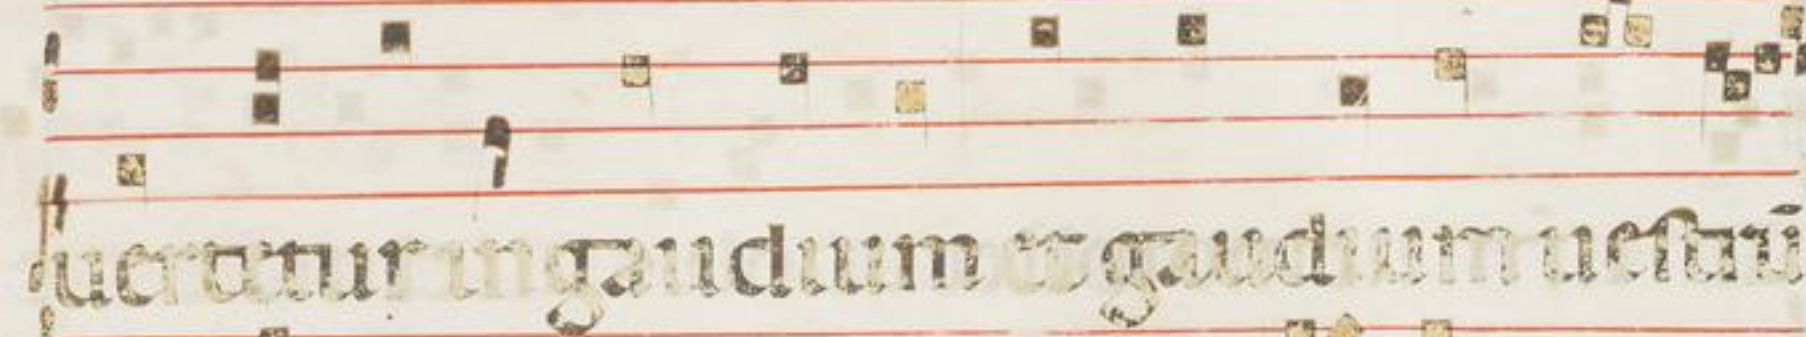 uertetur in gaudium et gaudium uestrū